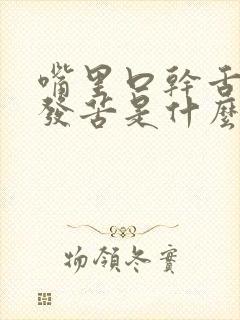 嘴里口幹舌
發苦是什麼
物領冬實